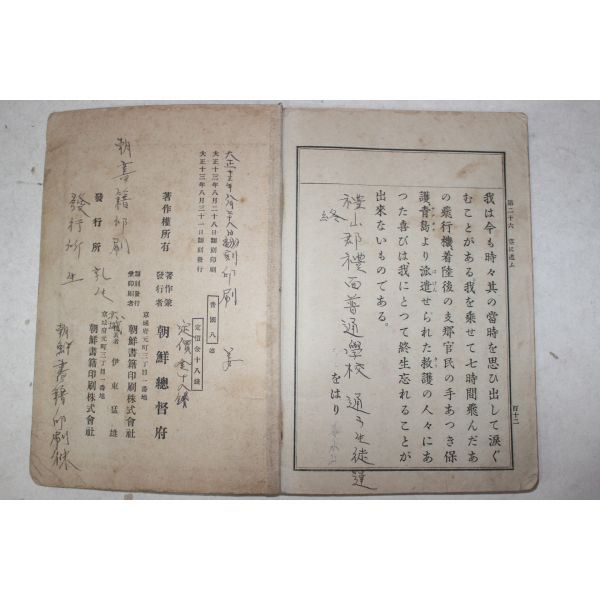 第二十六
四十二
我は今も時々其の當時を思ひ出して涙ぐ
むことがある我を乘せて七時間飛んだあ
の飛行機、着陸後の支那官民の手あつき保
護、青島より派遣せられた救護の人々にあ
つた喜びは我にとつて終生忘れることが
出來ないものである。
をはり
禮山郡禮面普通學校
終
大正十三年八月二十八日飜刻印刷
大正十三年八月三十一日飜刻發行
定價金十八錢
定價金十八錢
著作權所有
著作兼發行者
朝鮮總督府
京城府元町三丁目一番地
飜刻發行兼印刷者
朝鮮書籍印刷株式會社
伊東猛雄
京城府元町三丁目一番地
發行所
朝鮮書籍印刷株式會社
朝書籍印刷
發行所
朝鮮書籍印刷株